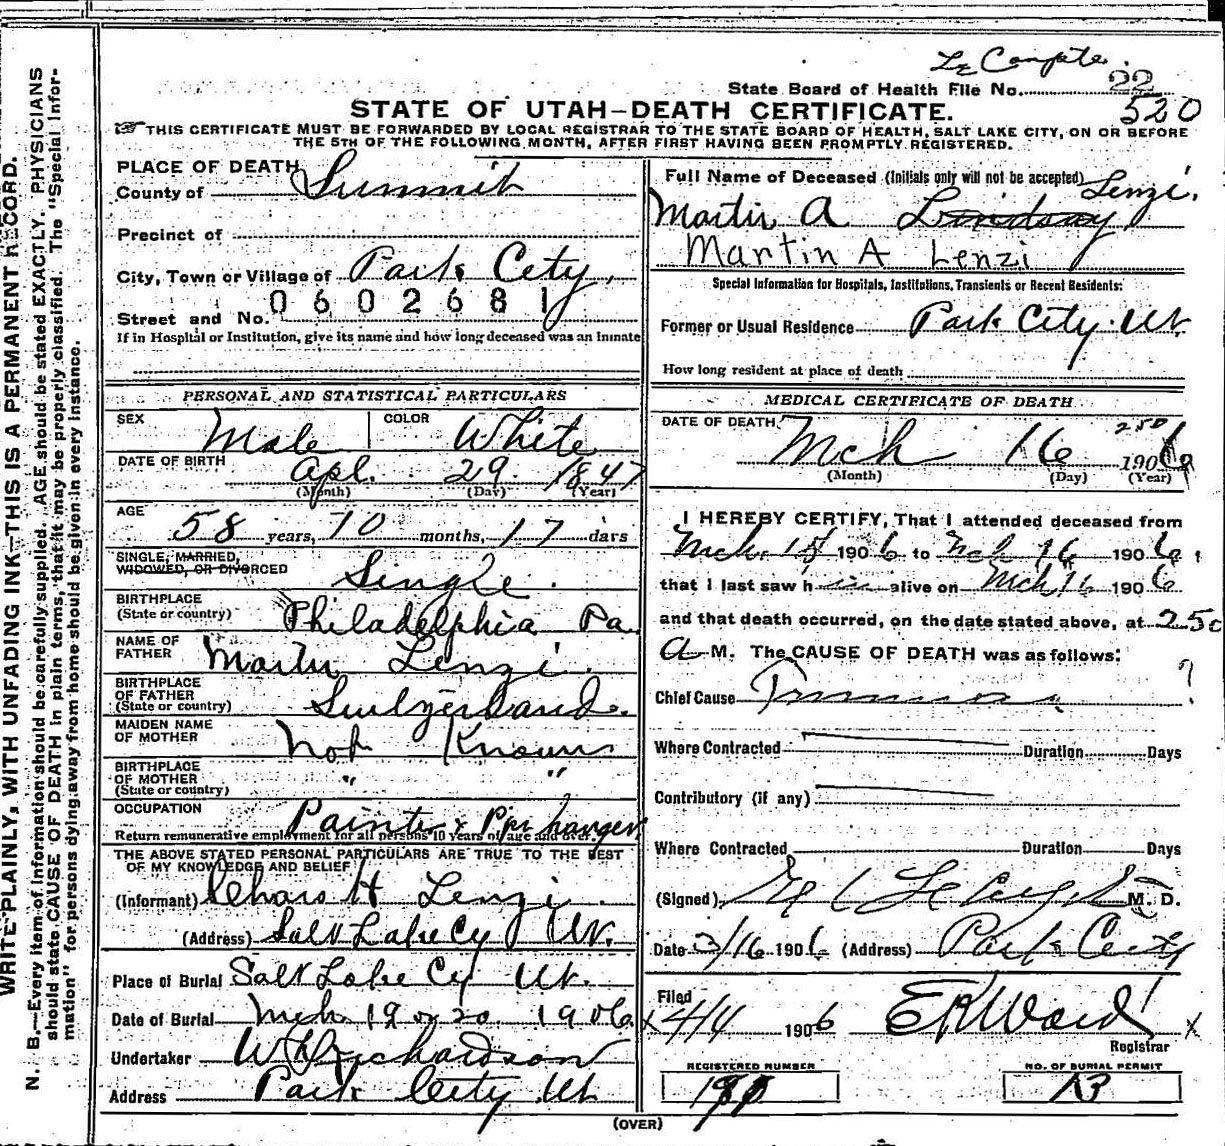 Le Compte.
State Board of Health File No. 22
520
STATE OF UTAH—DEATH CERTIFICATE.
☞ THIS CERTIFICATE MUST BE FORWARDED BY LOCAL REGISTRAR TO THE STATE BOARD OF HEALTH, SALT LAKE CITY, ON OR BEFORE
THE 5TH OF THE FOLLOWING MONTH, AFTER FIRST HAVING BEEN PROMPTLY REGISTERED.
WRITE PLAINLY, WITH UNFADING INK—THIS IS A PERMANENT RECORD.
N. B.—Every item of information should be carefully supplied. AGE should be stated EXACTLY. PHYSICIANS
should state CAUSE OF DEATH in plain terms, that it may be properly classified. The "Special Infor-
mation" for persons dying away from home should be given in every instance.
PLACE OF DEATH
County of Summit
Precinct of
City, Town or Village of Park City,
0602681
Street and No.
If in Hospital or Institution, give its name and how long deceased was an inmate
PERSONAL AND STATISTICAL PARTICULARS
SEX Male COLOR White
DATE OF BIRTH Apl. 29 1847
(Month) (Day) (Year)
AGE 58 years, 10 months, 17 days
SINGLE, MARRIED,
WIDOWED, OR DIVORCED Single.
BIRTHPLACE
(State or country) Philadelphia Pa.
NAME OF
FATHER Martin Lenzi.
BIRTHPLACE
OF FATHER
(State or country) Switzerland.
MAIDEN NAME
OF MOTHER Not Known
BIRTHPLACE
OF MOTHER
(State or country) " "
OCCUPATION Painter & Ppr hanger
Return remunerative employment for all persons 10 years of age and over.
THE ABOVE STATED PERSONAL PARTICULARS ARE TRUE TO THE BEST
OF MY KNOWLEDGE AND BELIEF
(Informant) Chars H Lenzi.
(Address) Salt Lake Cy Ut.
Place of Burial Salt Lake Cy Ut.
Date of Burial Mch. 19 or 20 1906
Undertaker Richardson
Address Park City Ut
Full Name of Deceased (Initials only will not be accepted) Lenzi.
Martin A Lindsay
Martin A Lenzi
Special Information for Hospitals, Institutions, Transients or Recent Residents:
Former or Usual Residence Park City. Ut.
How long resident at place of death
MEDICAL CERTIFICATE OF DEATH
DATE OF DEATH 250
Mch 16 1906
(Month) (Day) (Year)
I HEREBY CERTIFY, That I attended deceased from
Mch. 15 1906 to Mch 16 1906.
that I last saw him alive on Mch 16 1906
and that death occurred, on the date stated above, at 250
A M. The CAUSE OF DEATH was as follows:
Chief Cause ?
Where Contracted Duration Days
Contributory (if any)
Where Contracted Duration Days
(Signed) M. D.
Date 3/16 1906 (Address) Park City
Filed
x 4/4 1906 E R Ward x
Registrar
REGISTERED NUMBER NO. OF BURIAL PERMIT
13
(OVER)